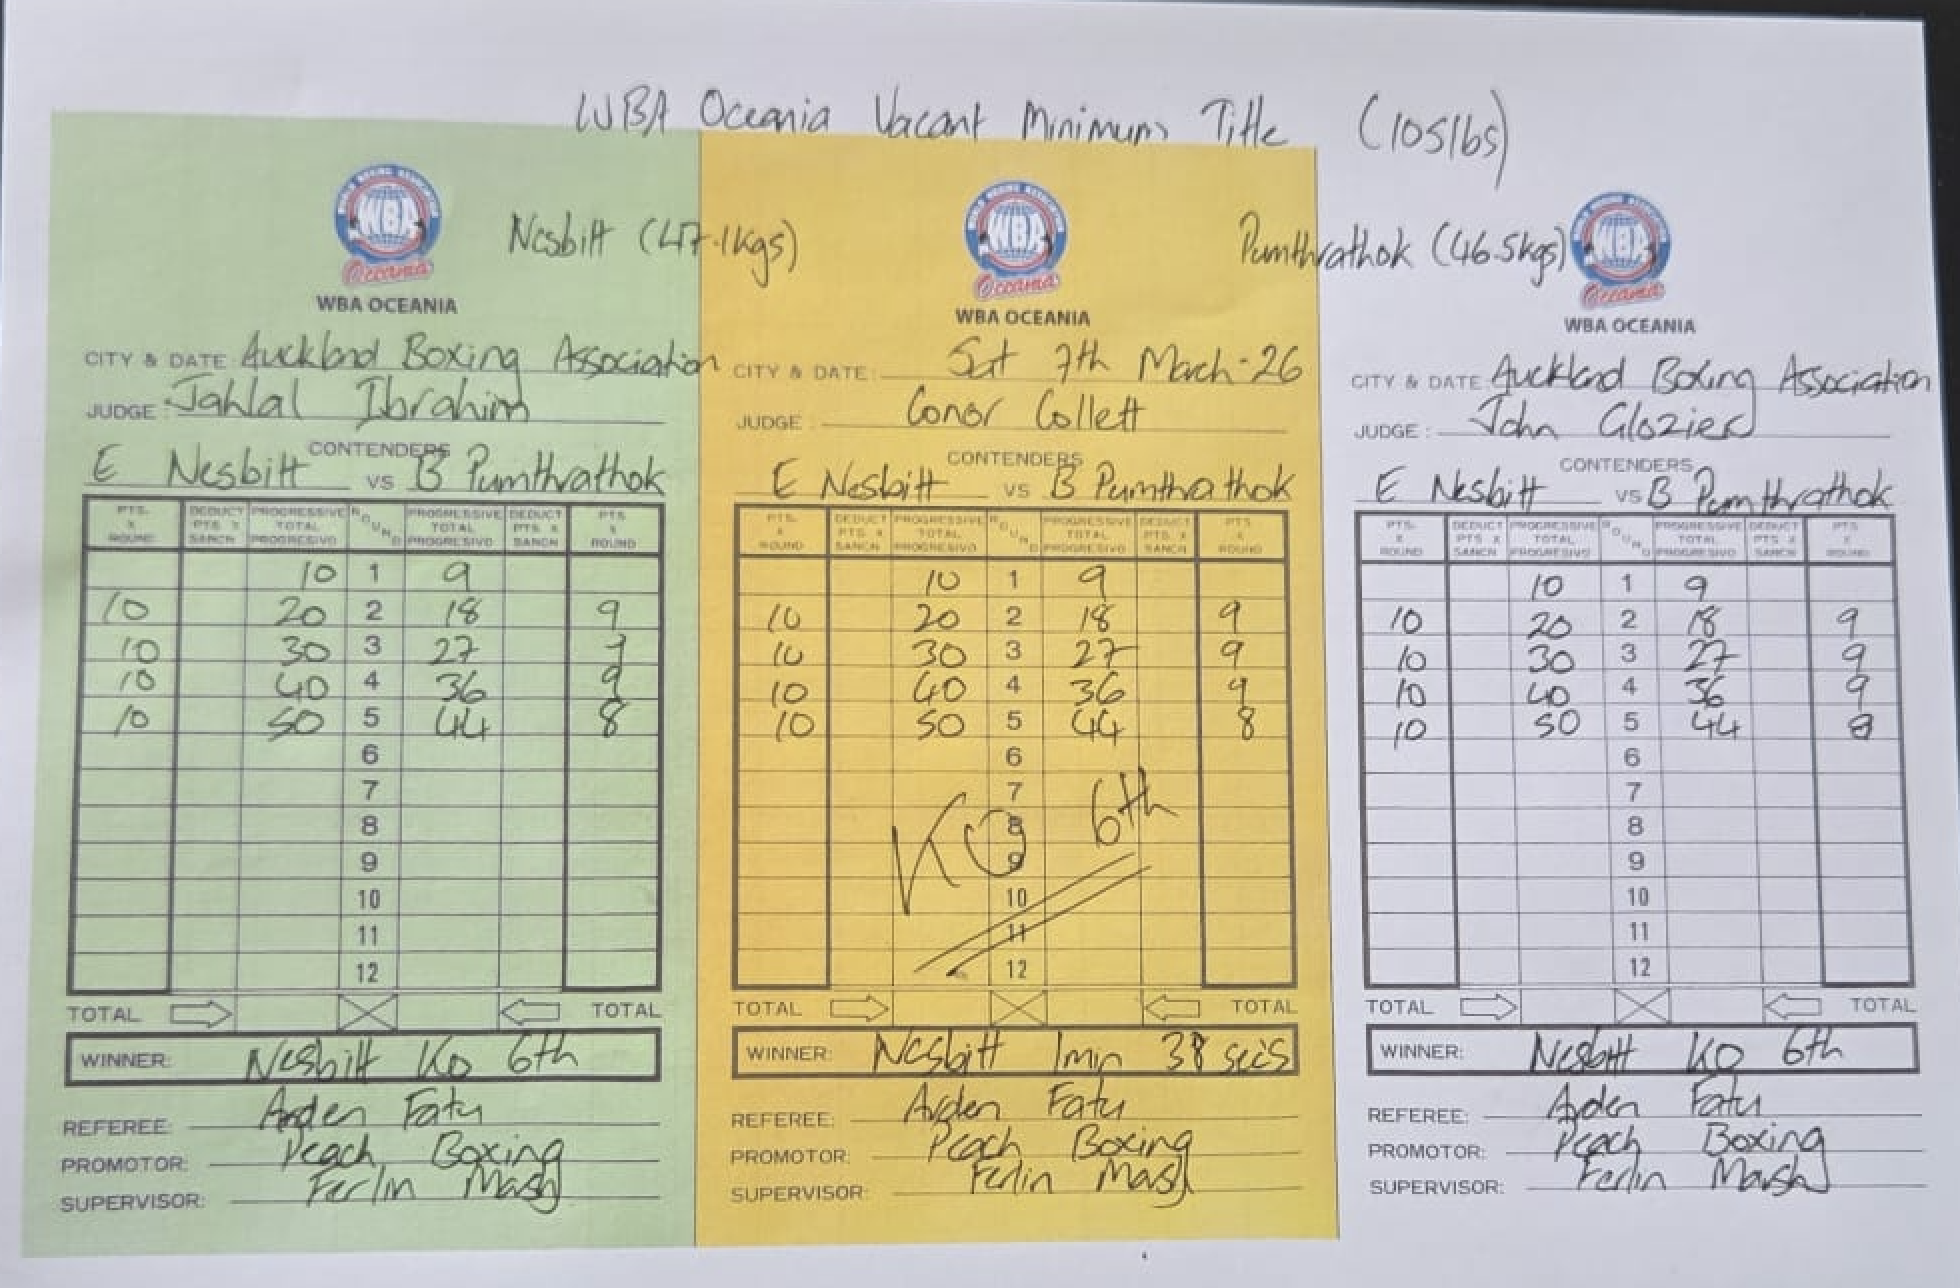 WBA Oceania Vacant Minimum Title (105lbs)
Nesbitt (47.1kgs)
Pumthrathok (46.5kgs)
WBA
Oceania
WBA OCEANIA
CITY & DATE: Auckland Boxing Association
JUDGE: Jahlal Ibrahim
CONTENDERS
E Nesbitt VS B Pumthrathok
PTS. X ROUND DEDUCT PTS X SANCN PROGRESSIVE TOTAL PROGRESIVO ROUND PROGRESSIVE TOTAL PROGRESIVO DEDUCT PTS X SANCN PTS X ROUND
10 1 9
10 20 2 18 9
10 30 3 27 9
10 40 4 36 9
10 50 5 44 8
6
7
8
9
10
11
12
TOTAL TOTAL
WINNER: Nesbitt KO 6th
REFEREE: Arden Fatu
PROMOTOR: Peach Boxing
SUPERVISOR: Ferlin Marsh
WBA
Oceania
WBA OCEANIA
CITY & DATE: Sat 7th March-26
JUDGE: Conor Collett
CONTENDERS
E Nesbitt VS B Pumthrathok
PTS. X ROUND DEDUCT PTS X SANCN PROGRESSIVE TOTAL PROGRESIVO ROUND PROGRESSIVE TOTAL PROGRESIVO DEDUCT PTS X SANCN PTS X ROUND
10 1 9
10 20 2 18 9
10 30 3 27 9
10 40 4 36 9
10 50 5 44 8
6
7
8
KO 6th
9
10
11
12
TOTAL TOTAL
WINNER: Nesbitt 1min 38 secs
REFEREE: Arden Fatu
PROMOTOR: Peach Boxing
SUPERVISOR: Ferlin Marsh
WBA
Oceania
WBA OCEANIA
CITY & DATE: Auckland Boxing Association
JUDGE: John Glozier
CONTENDERS
E Nesbitt VS B Pumthrathok
PTS. X ROUND DEDUCT PTS X SANCN PROGRESSIVE TOTAL PROGRESIVO ROUND PROGRESSIVE TOTAL PROGRESIVO DEDUCT PTS X SANCN PTS X ROUND
10 1 9
10 20 2 18 9
10 30 3 27 9
10 40 4 36 9
10 50 5 44 8
6
7
8
9
10
11
12
TOTAL TOTAL
WINNER: Nesbitt KO 6th
REFEREE: Arden Fatu
PROMOTOR: Peach Boxing
SUPERVISOR: Ferlin Marsh